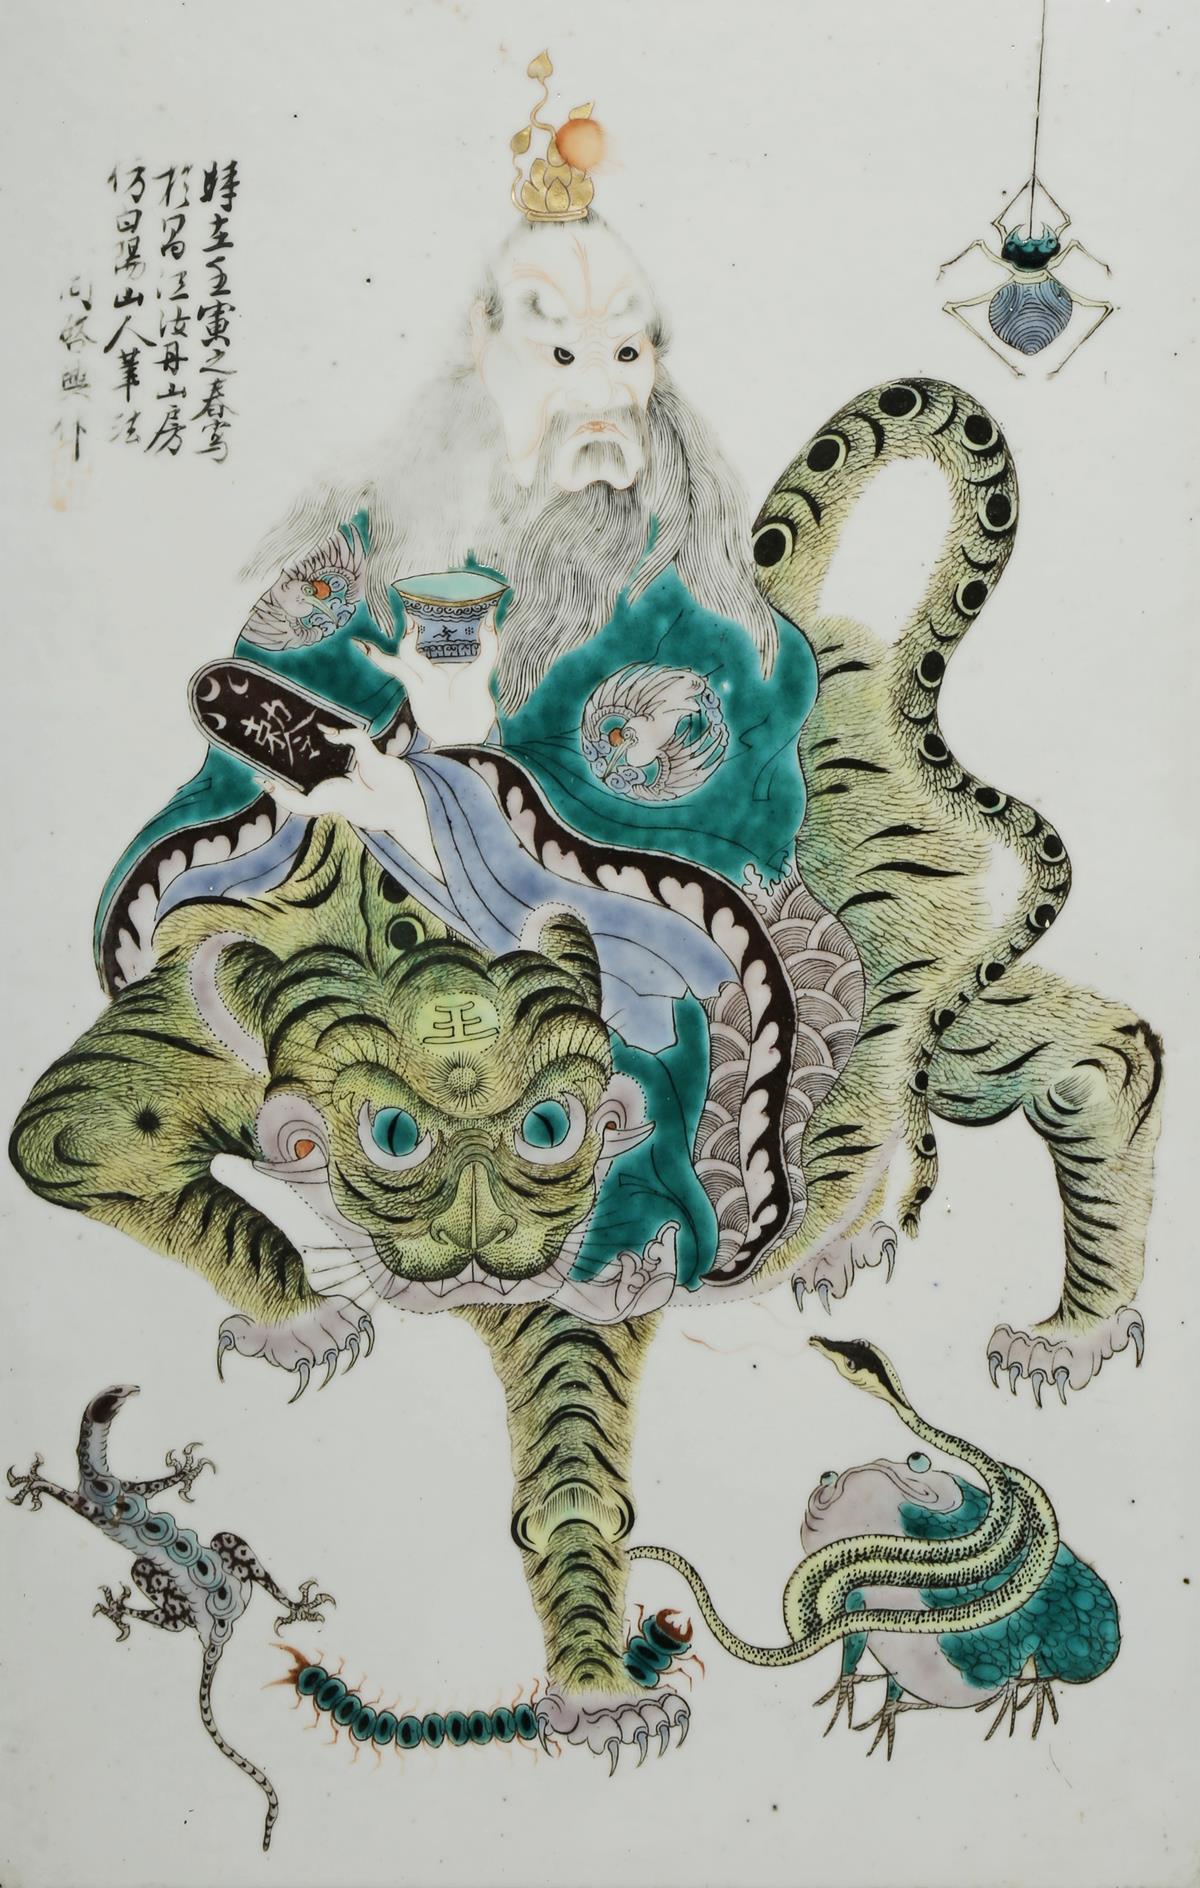 時在壬寅之春寫
於昌江汝丹山房
仿白陽山人筆法
周啓興作
敕令
王